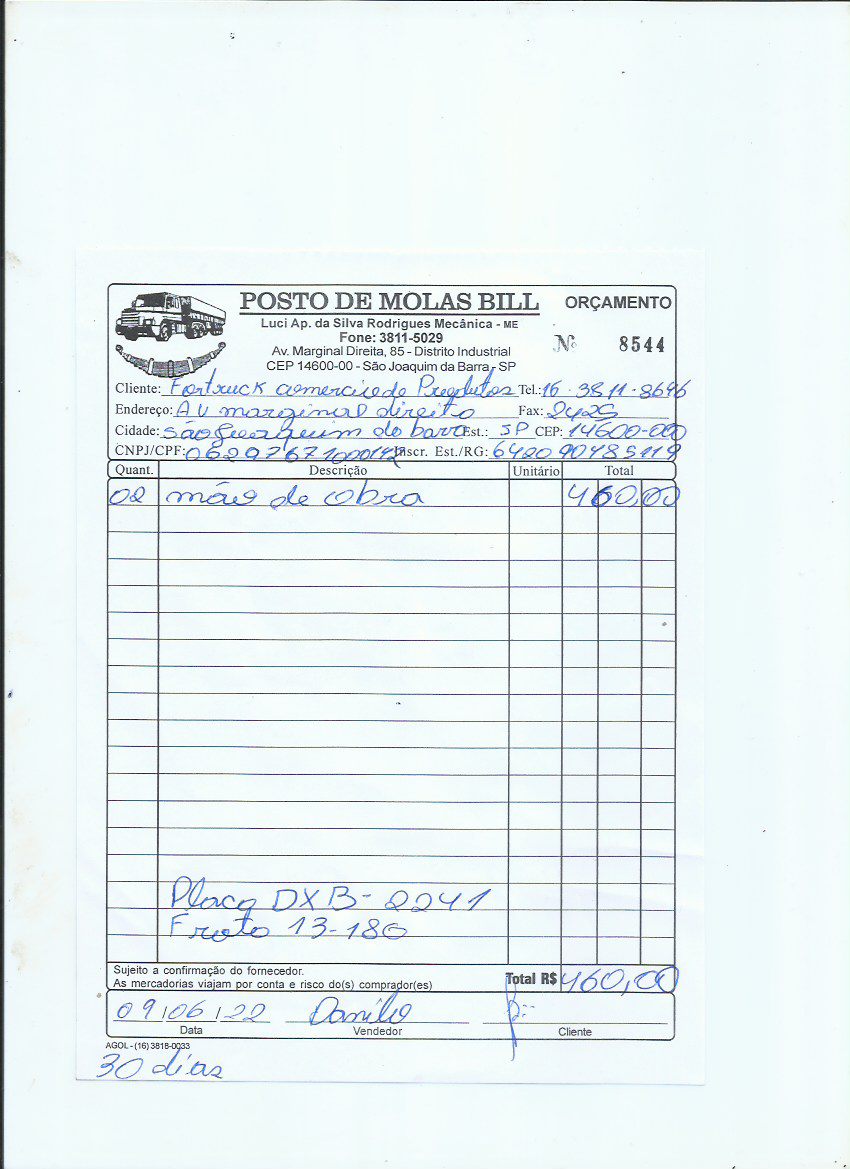 POSTO DE MOLAS BILL ORÇAMENTO
Luci Ap. da Silva Rodrigues Mecânica - ME
Fone: 3811-5029 Nº 8544
Av. Marginal Direita, 85 - Distrito Industrial
CEP 14600-00 - São Joaquim da Barra - SP
Cliente: Fortruck comercio de Produtos Tel.: 16-3811-8696
Endereço: AV marginal direito Fax: 2425
Cidade: são Joaquim do barra Est.: SP CEP: 14600-000
CNPJ/CPF: Inscr. Est./RG:
Quant. Descrição Unitário Total
02 mão de obra 460,00
Placa DXB-2241
Froto 13-180
Sujeito a confirmação do fornecedor.
As mercadorias viajam por conta e risco do(s) comprador(es) Total R$ 460,00
09/06/22 Danilo
Data Vendedor Cliente
AGOL - (16) 3818-0033
30 dias